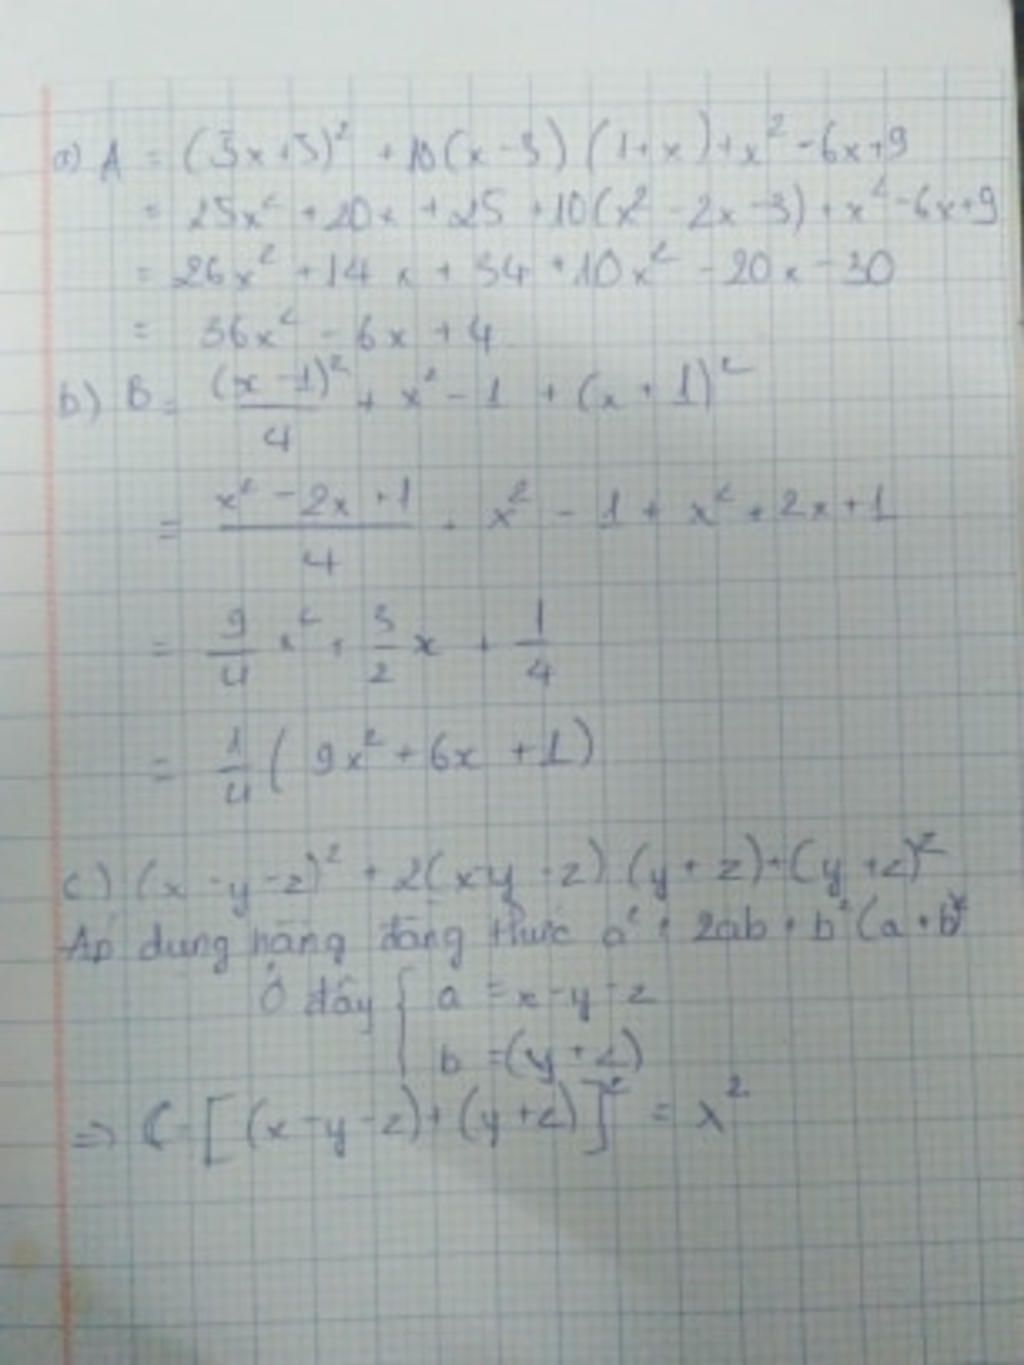 a) A = (3x+5)² + 10(x-3)(1+x)+x²-6x+9
= 25x² +20x +25 +10(x² -2x-3) + x²-6x+9
= 26x² +14x + 34 +10x² -20x -30
= 36x² - 6x + 4
b) B = (x-1)²/4 + x² - 1 + (x+1)²
= (x² - 2x +1)/4 + x² - 1 + x² + 2x + 1
= 9/4 x² + 3/2 x + 1/4
= 1/4 ( 9x² + 6x + 1)
c) (x - y - z)² + 2(x-y-z)(y+z)+(y+z)²
Áp dụng hằng đẳng thức a² + 2ab + b² (a+b)²
Ở đây { a = x-y-z
b =(y+z)
=> C = [(x-y-z)+(y+z)]² = x²